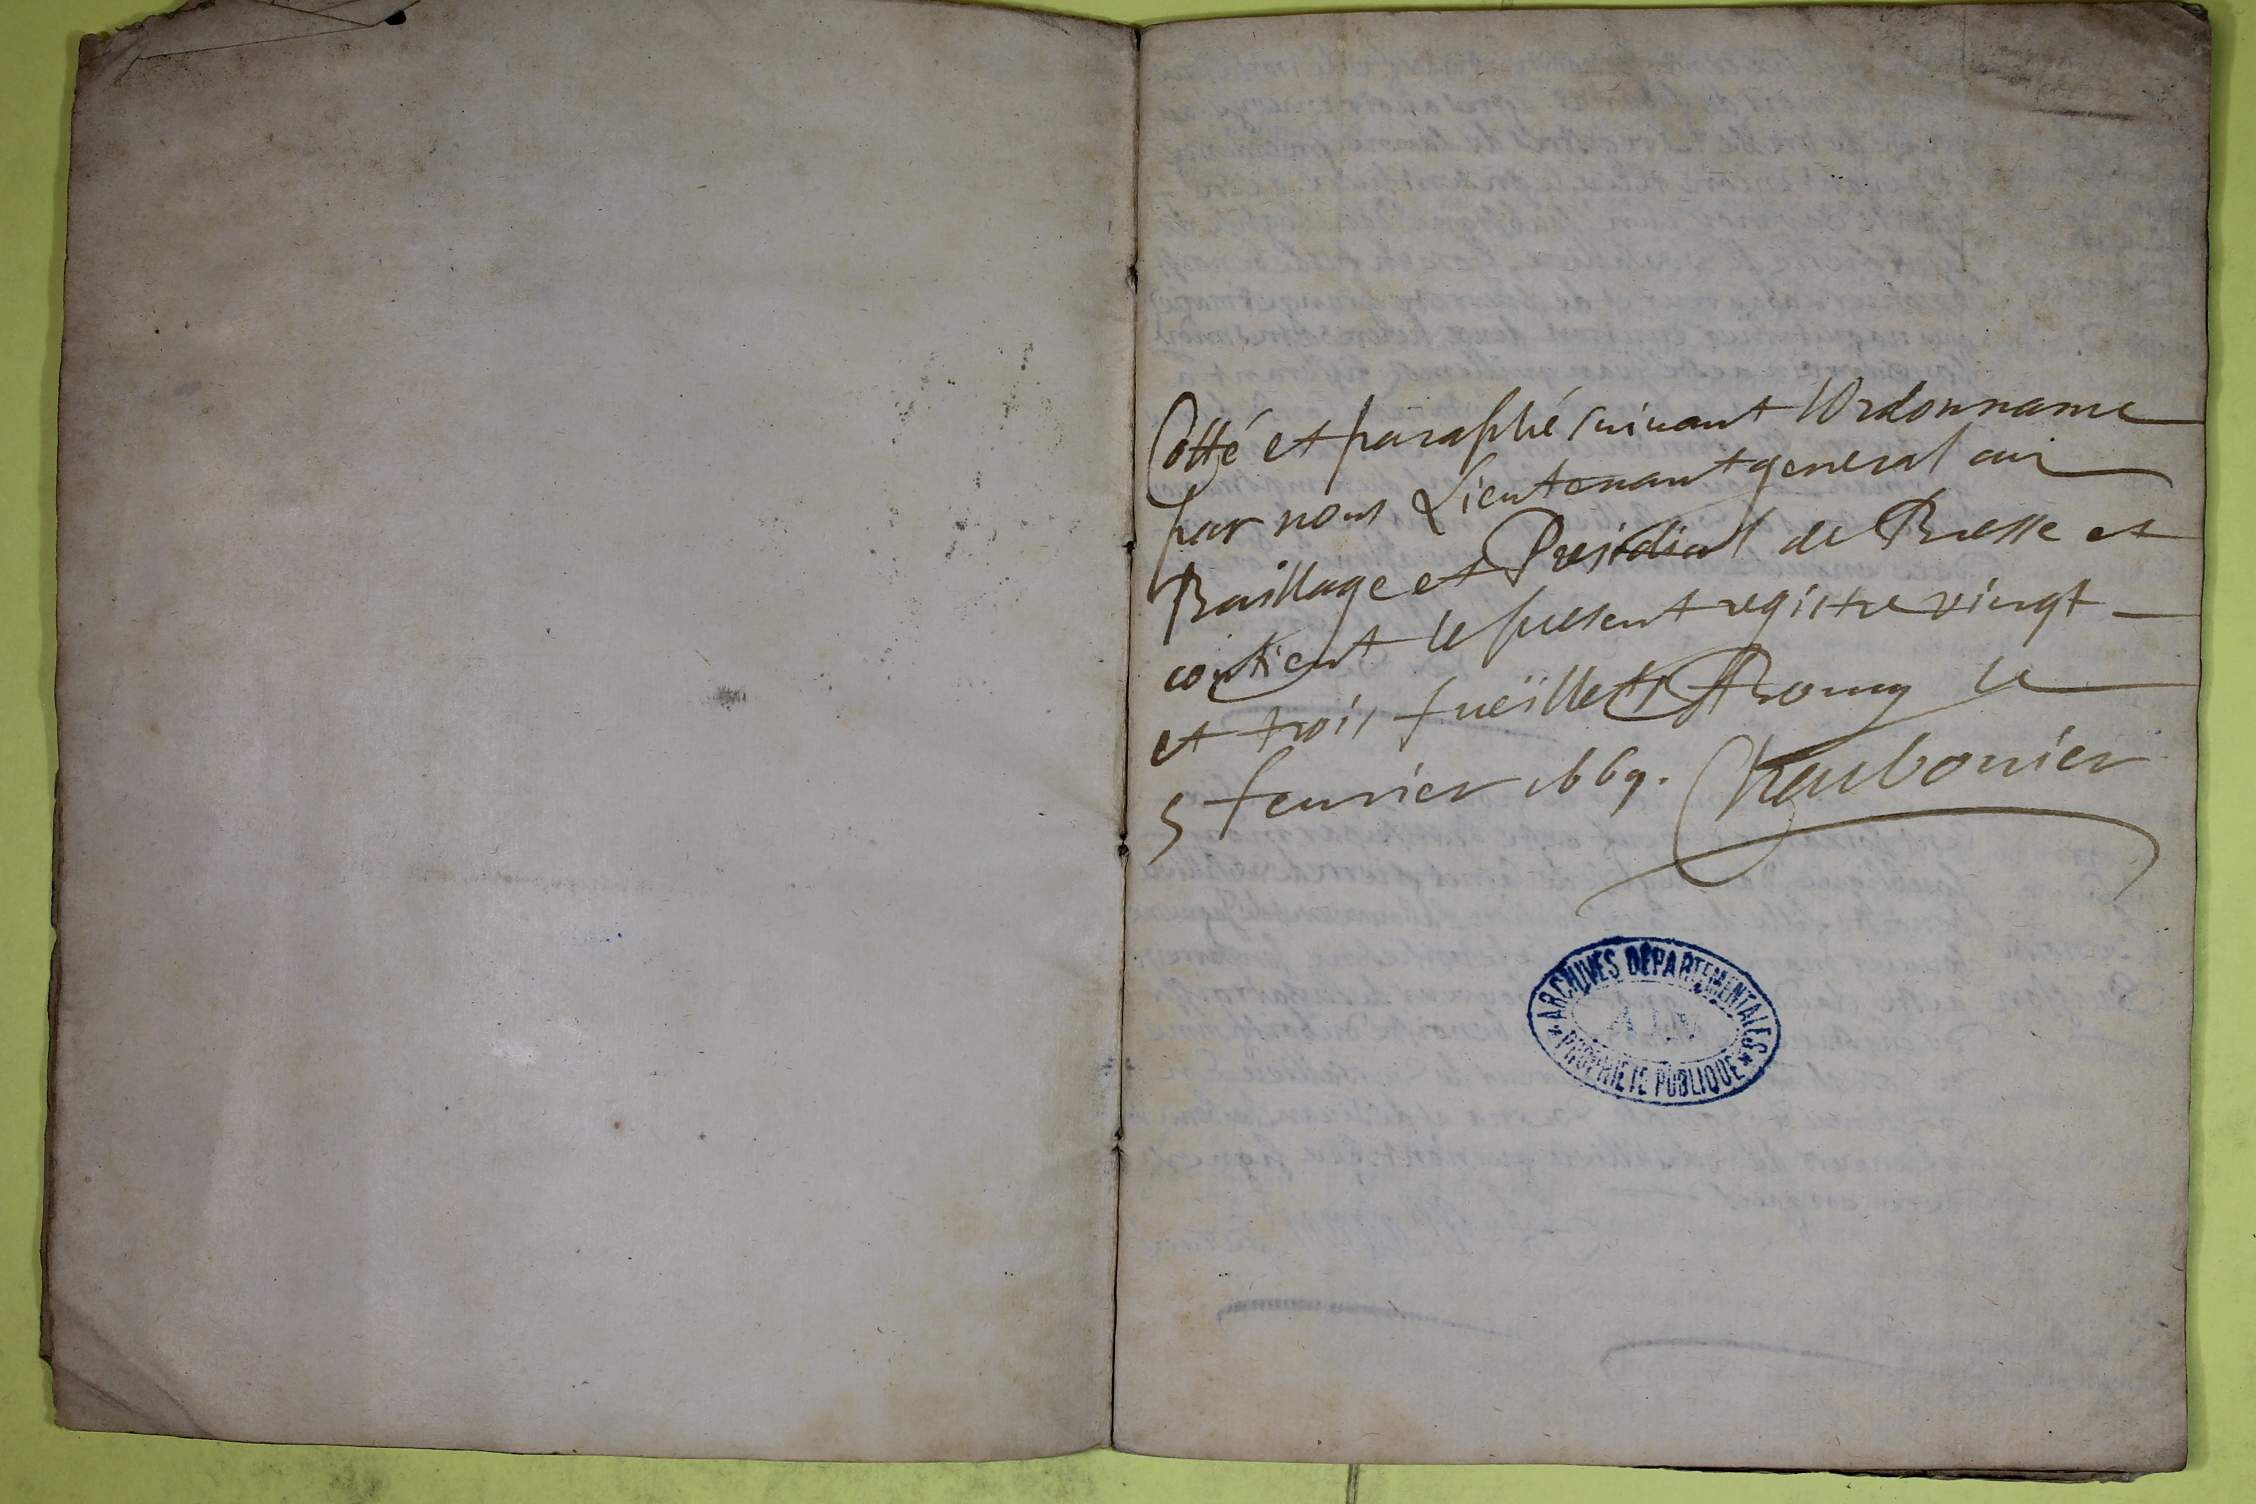 Cotté et paraphé suiuant lOrdonnance
par nous Lieutenant general au
Baillage et Presidial de Bresse et
contient le present registre vingt
et trois fueïllets A Bourg le
5 feurier 1669. Charbonnier
ARCHIVES DÉPARTEMENTALES
AIN
PROPRIÉTÉ PUBLIQUE